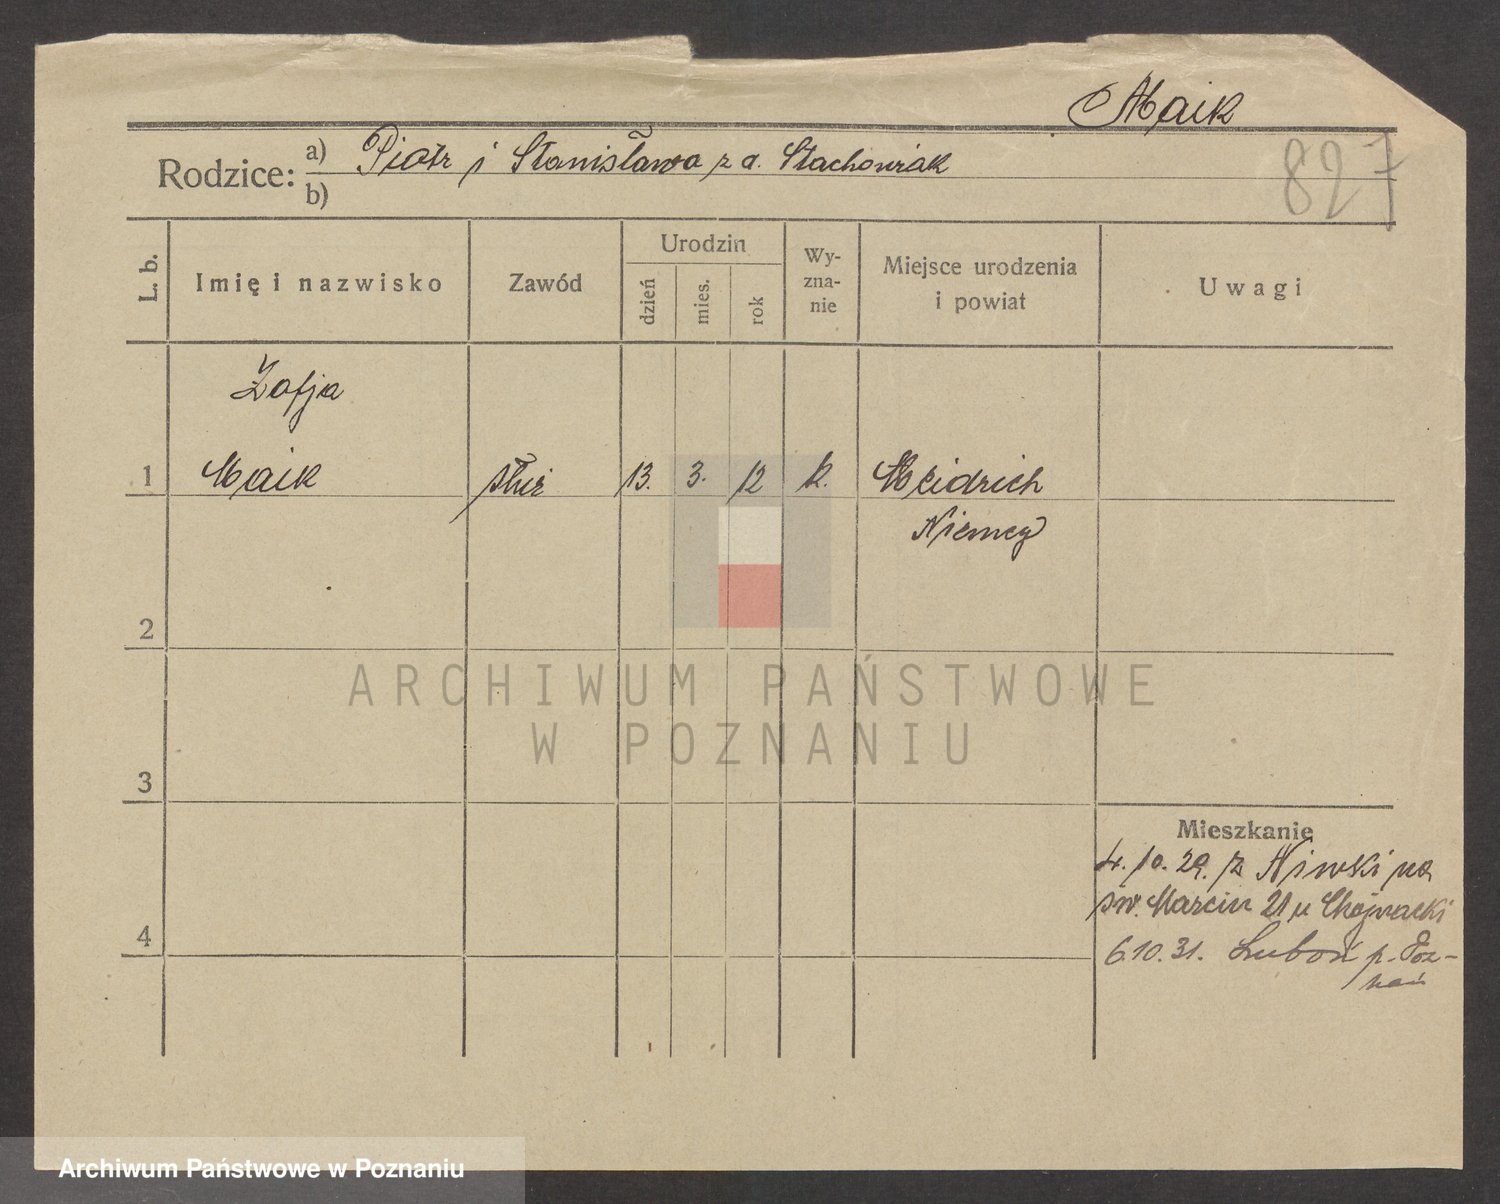 Maik
827
Rodzice: a) Piotr i Stanisława z d. Stachowiak
b)
L. b.
Imię i nazwisko
Zawód
Urodzin
dzień
mies.
rok
Wy-
zna-
nie
Miejsce urodzenia
i powiat
Uwagi
Zofja
1 Maik służ 13. 3. 12 k. Meidrich
Niemcy
2
3
4
Mieszkanie
4.10.29. z Niwski na
św. Marcin 21 u Chojnacki
6.10.31. Luboń p. Poz-
nań
ARCHIWUM PAŃSTWOWE
W POZNANIU
Archiwum Państwowe w Poznaniu